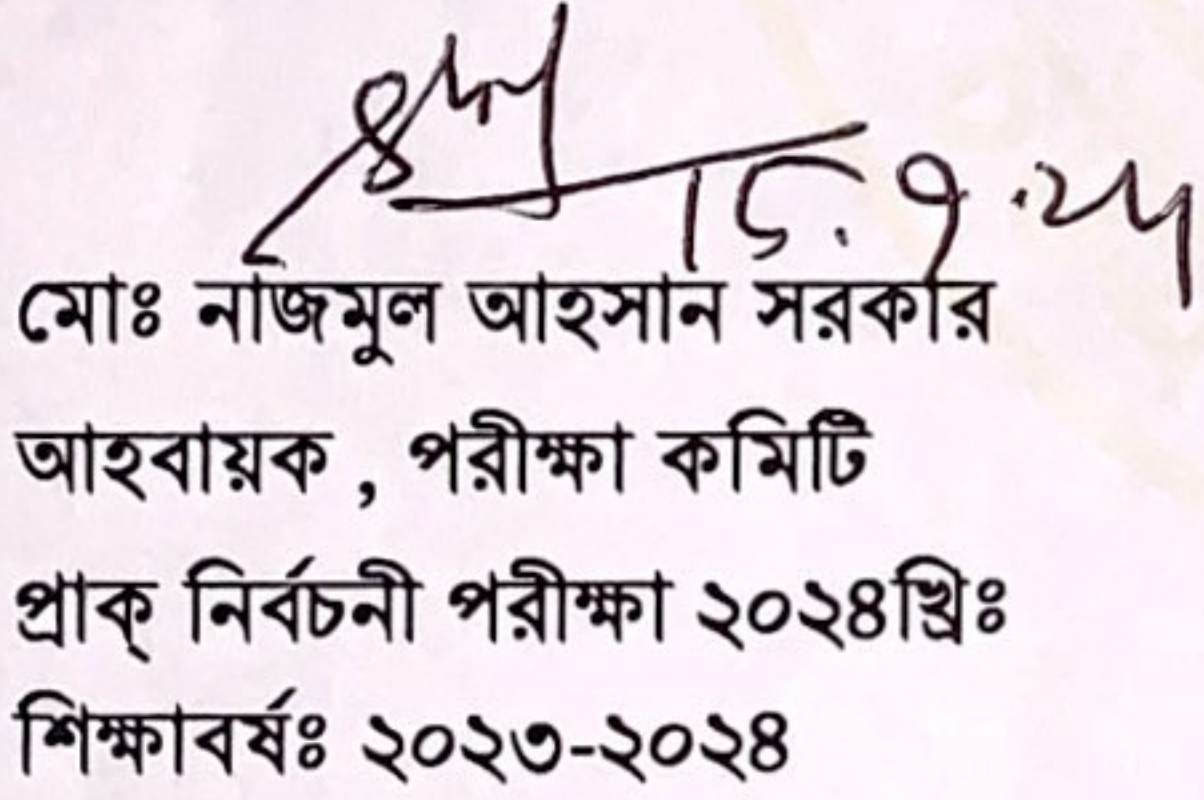 মোঃ নাজমুল আহসান সরকার
আহবায়ক , পরীক্ষা কমিটি
প্রাক্ নির্বচনী পরীক্ষা ২০২৪খ্রিঃ
শিক্ষাবর্ষঃ ২০২৩-২০২৪